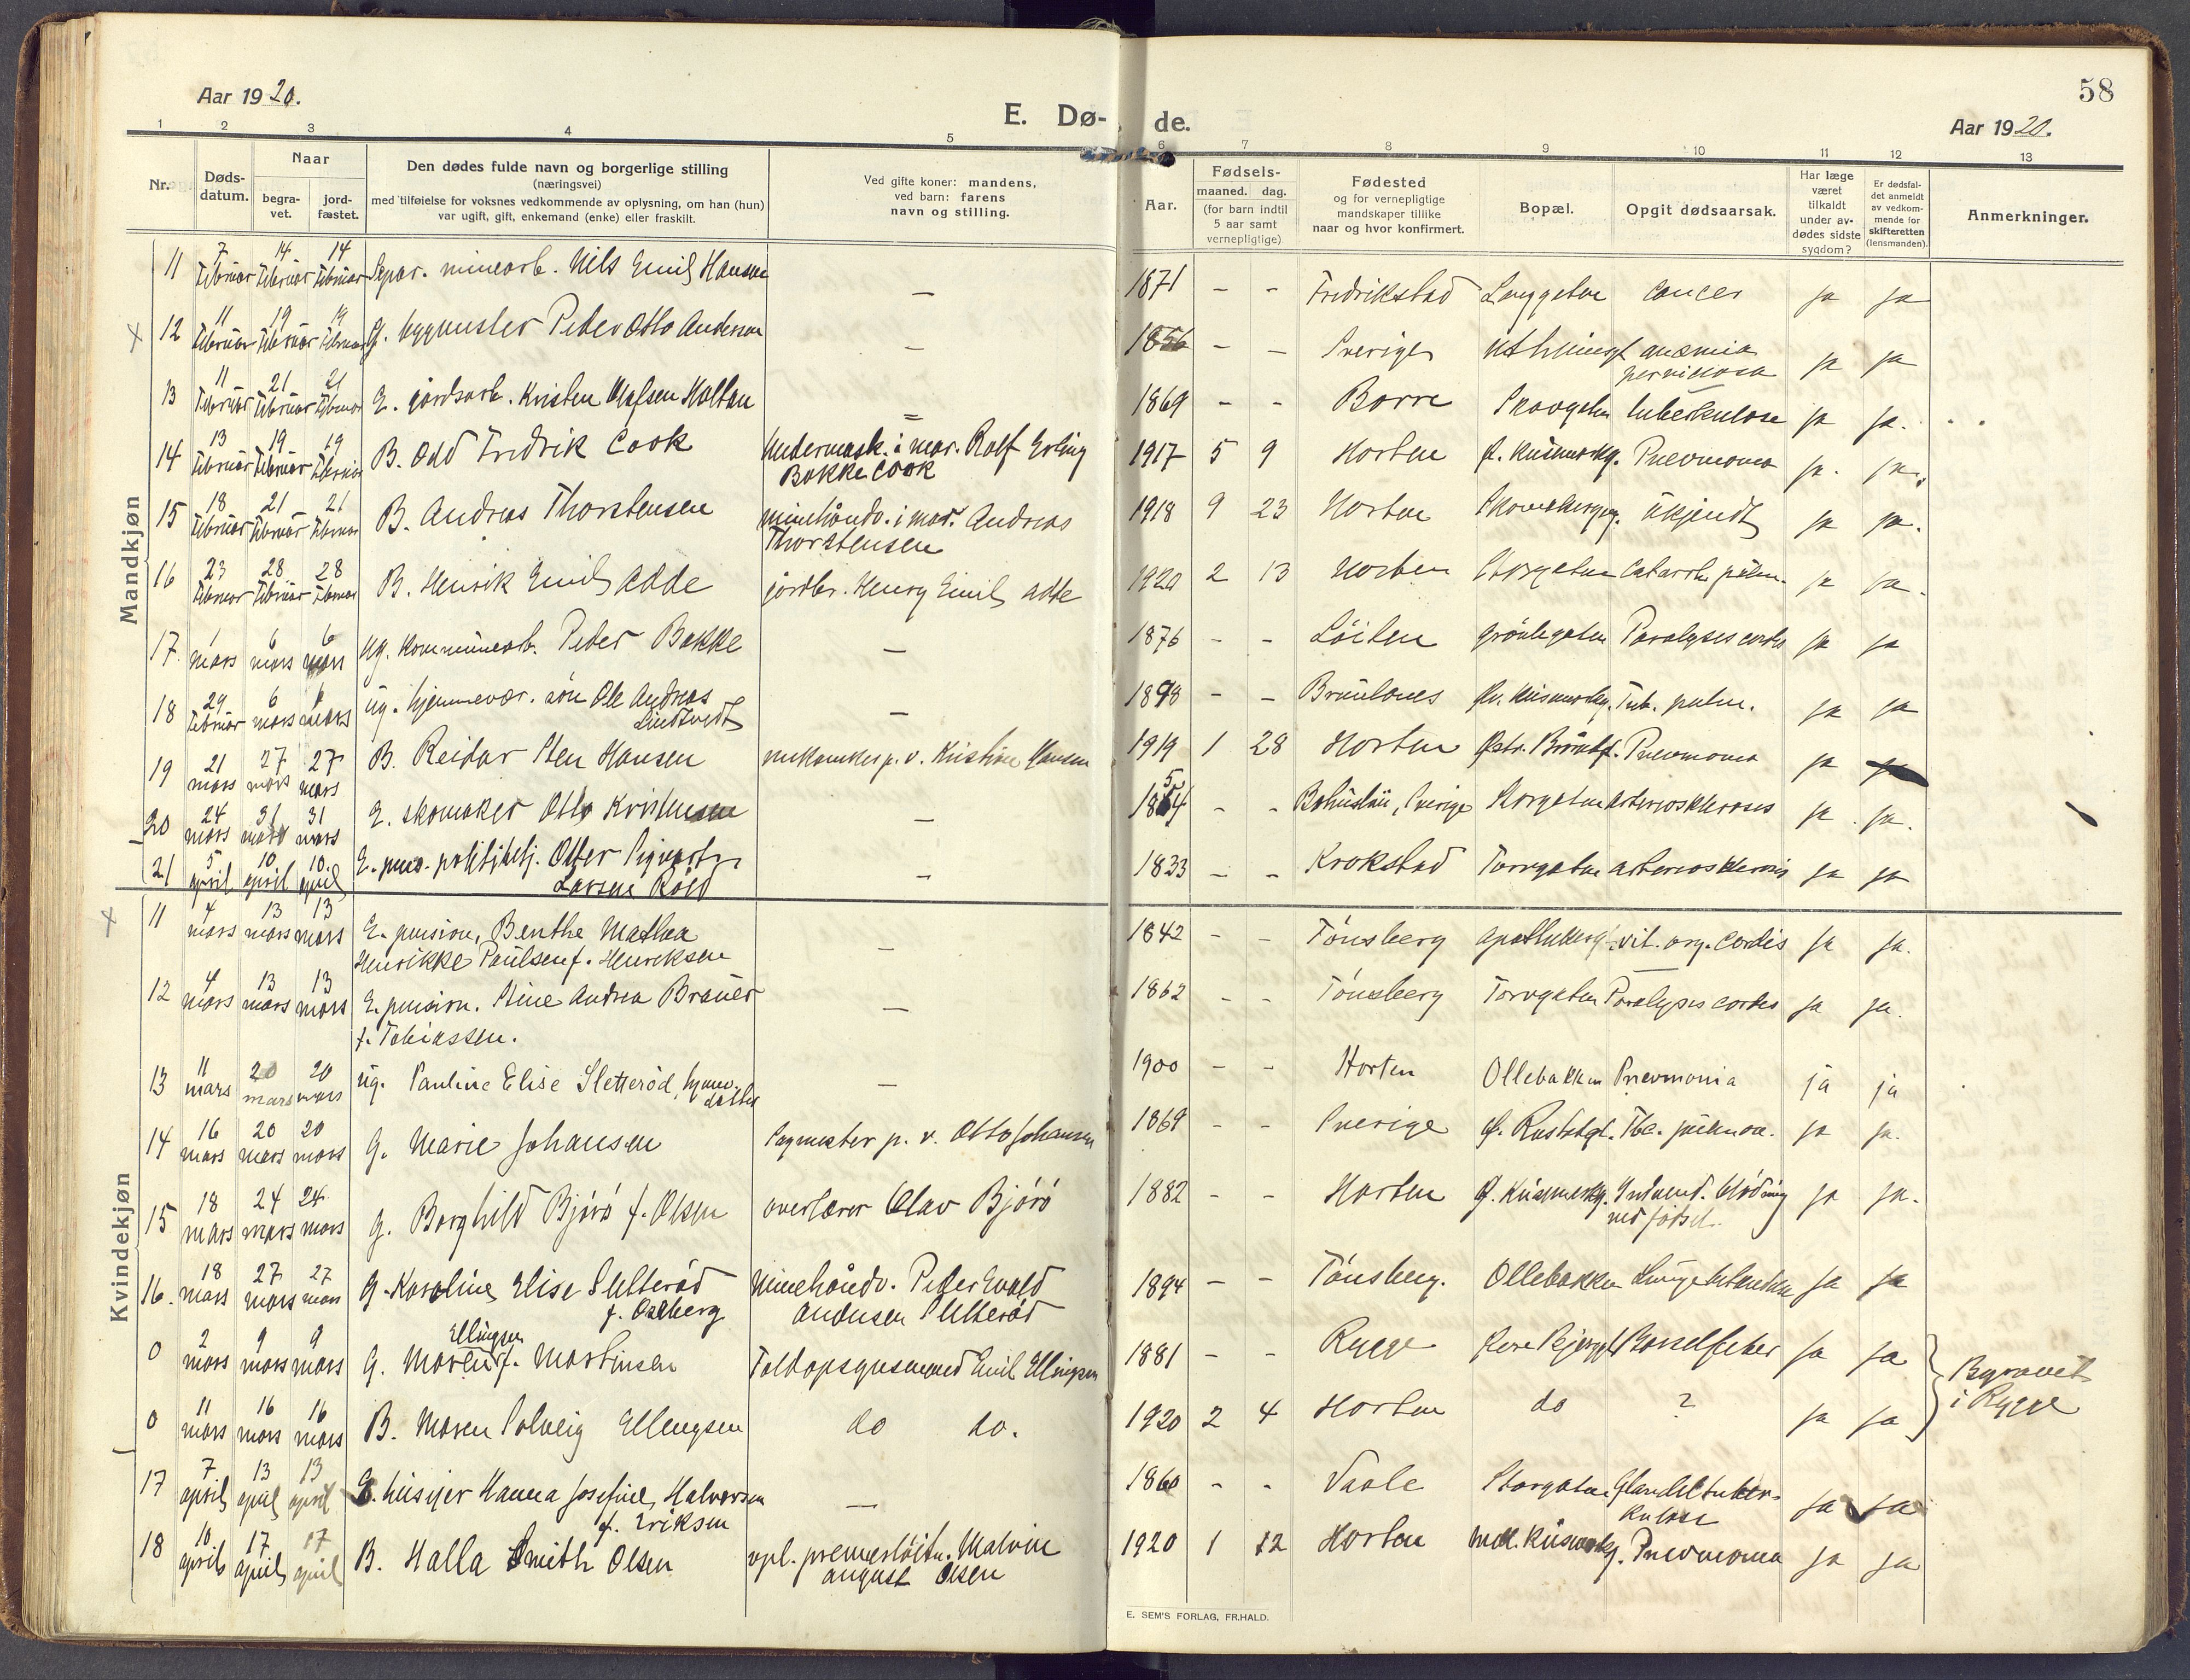 58
Aar 1920.
E. Dø- de.
Aar 1920.
1 2 3 4 5 6 7 8 9 10 11 12 13
Nr.
Døds-
datum.
Naar
begra-
vet.
jord-
fæstet.
Den dødes fulde navn og borgerlige stilling
(næringsvei)
med tilføielse for voksnes vedkommende av oplysning, om han (hun)
var ugift, gift, enkemand (enke) eller fraskilt.
Ved gifte koner: mandens,
ved barn: farens
navn og stilling.
Aar.
Fødsels-
maaned. dag.
(for barn indtil
5 aar samt
vernepligtige)
Fødested
og for vernepligtige
mandskaper tillike
naar og hvor konfirmert.
Bopæl.
Opgit dødsaarsak.
Har læge
været
tilkaldt
under av-
dødes sidste
sygdom?
Er dødsfal-
det anmeldt
av vedkom-
mende for
skifteretten
(lensmanden).
Anmerkninger.
Mandkjøn
11 7 Februar 14 Februar 14 Februar Separ. minearb. Nils Emil Hansen — 1871 - - Fredrikstad Langgaten Cancer ja ja
12 11 Februar 19 Februar 19 Februar G. bygmester Peder Otto Andersen — 1856 - - Sverige anæmia perniciosa ja ja
13 11 Februar 21 Februar 21 Februar E. jordsarb. Kristen Olafsen Holtan = 1869 - - Borre Skovgaten tuberkulose ja ja.
14 13 Februar 19 Februar 19 Februar B. Odd Fredrik Cook Undermask. i mar. Rolf Erling
Bakke Cook 1917 5 9 Horten Pneumonia ja. ja.
15 18 Februar 21 Februar 21 Februar B. Andreas Thorstensen minehåndv. i mar. Andreas
Thorstensen 1918 9 23 Horten ukjendt ja ja.
16 23 Februar 28 Februar 28 Februar B. Henrik Emil Adde jordbr. Henry Emil Adde 1920 2 13 Horten Storgaten Catarrh. pulm. ja ja.
17. 1 mars 6 mars 6 mars ug. kommunearb. Peder Bakke — 1876 - - Löiten Grönligaten Paralysis cordis ja ja
18 29 Februar 6 mars 6 mars ug. hjemmevær. sön Ole Andreas
Lindtvedt — 1898 - - Brunlanes Tub. pulm. ja ja
19 21 mars 27 mars 27 mars B. Reidar Sten Hansen mekaniker p. v. Kristian Hansen 1919 1 28 Horten Pneumonia ja ja
20 24 mars 31 mars 31 mars E. skomaker Otto Kristensen — 1854 - - Bohuslän, Sverige Storgaten arteriosklerosis ja ja.
21 5 april 10 april 10. april E. pens. politibetj. Olfer Sigvart
Larsen Röed — 1833 - - Krokstad Torvgaten arteriosklerosis ja ja
Kvindekjøn
11 4 mars 13 mars 13 mars E. pension. Benthe Mathea
Henrikke Paulsen f. Henriksen — 1842 - - Tönsberg vit. org. cordis ja ja.
12 4 mars 13 mars 13 mars E. pension. Stine Andrea Brauer
f. Tobiassen. — 1862 - - Tönsberg Torvgaten Paralysis cordis ja ja.
13 11 mars 20 mars 20 mars ug. Pauline Elise Sletteröd, hjemv.
datter — 1900 - - Horten Ollebakken Pneumonia ja ja
14 16 mars 20 mars 20 mars G. Marie Johansen Sagmester p. v. Otto Johansen 1869 - - Sverige Tbc. pulmon. ja ja.
15 18 mars 24 mars 24 mars G. Borghild Bjørø f. Olsen overlærer Olav Bjørø 1882 - - Horten Indvend. blödning
ved fødsel. ja ja.
16. 18 mars 27 mars 27 mars G. Karoline Elise Sletteröd
f. Oseberg Minehåndv. Peder Evald
Andersen Sletteröd 1894 - - Tönsberg. Ollebakken ja ja
0 2 mars 9 mars 9 mars G. Maren Ellingsen f. Martinsen Toldopsynsmand Emil Ellingsen 1881 - - Rygge Barselfeber ja ja
Begravet
i Rygge
0 11 mars 16 mars 16 mars B. Maren Solveig Ellingsen do do. 1920 2 4 Horten do ? ja ja
17 7 april 13 april 13 april E. husejer Hanna Josefine Halvorsen
f. Eriksen — 1860 - - Vaale Storgaten Glandeltuber-
kulose ja ja
18 10 april 17 april 17 april B. Halla Smith Olsen vpl. premierlöitn. Malvin
August Olsen 1920 1 12 Horten Pneumonia ja ja
E. SEM'S FORLAG, FR.HALD.